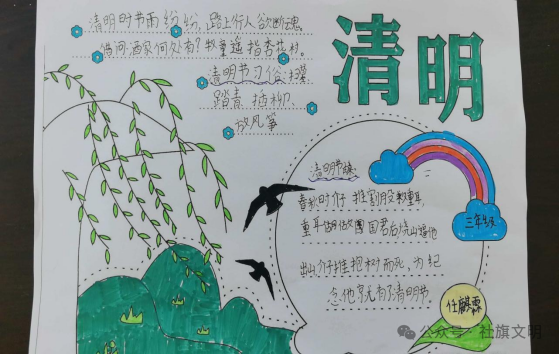 清明时节雨纷纷,路上行人欲断魂
借问酒家何处有?牧童遥指杏花村。
清明节习俗:扫墓
踏青 插柳
放风筝
清明
清明节
春秋时介子推割肉
重耳 国君后烧山逼他
出山,介子推抱树而死,为纪
念他就有了清明节。
三年级
任麒霖
公众号·社旗文明